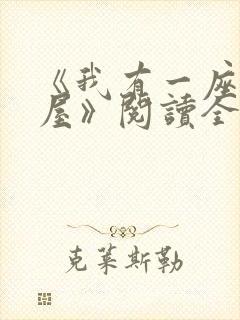 《我有一座
屋》閱讀全
克莱斯勒